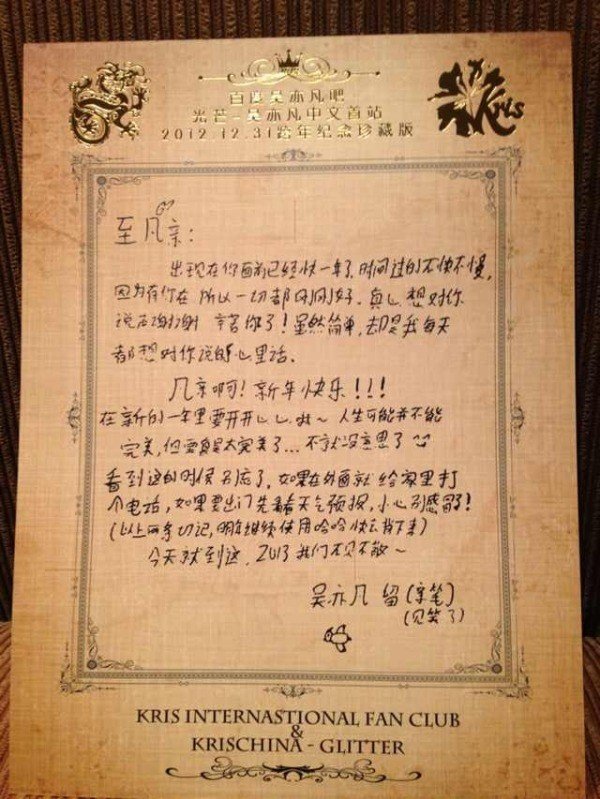 百度吴亦凡吧
光芒-吴亦凡中文首站
2012.12.31跨年纪念珍藏版
KRIS
至凡亲:
出现在你面前已经快一年了,时间过的不快不慢,
因为有你在 所以一切都刚刚好. 真心想对你
说声谢谢 辛苦你了!虽然简单,却是我每天
都想对你说的心里话.
凡亲啊!新年快乐!!!
在新的一年里要开开心心哦~ 人生可能并不能
完美,但要真是太完美了...不就没意思了
看到这的时候 别忘了,如果在外面就 给家里打
个电话,如果要出门先看看天气预报,小心别感冒了!
(以上两条切记,明年继续使用哈哈快点背下来)
今天就到这, 2013 我们不见不散~
吴亦凡 留(亲笔)
(见笑了)
KRIS INTERNASTIONAL FAN CLUB
&
KRISCHINA - GLITTER